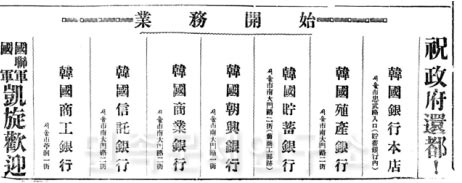 業務開始
祝政府還都!
韓國銀行本店
韓國殖産銀行
서울市南大門路二街
韓國貯蓄銀行
韓國朝興銀行
서울市南大門路一街
韓國商業銀行
서울市南大門路二街
韓國信託銀行
서울市南大門路二街
韓國商工銀行
國聯軍
國軍
凱旋歡迎